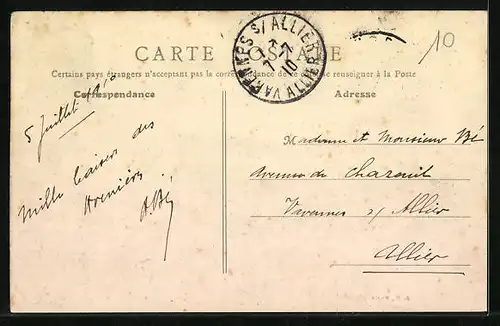 CARTE POSTALE
Certains pays étrangers n'acceptent pas la correspondance de ce côté se renseigner à la Poste
Correspondance
Adresse
VARENNES S/ ALLIER
7-7
10
ALLIER
10
5 Juillet 1910
Mille baisers des
A. Bé
Madame et Monsieur Bé
Avenue de Chazeuil
Varennes s/ Allier
Allier